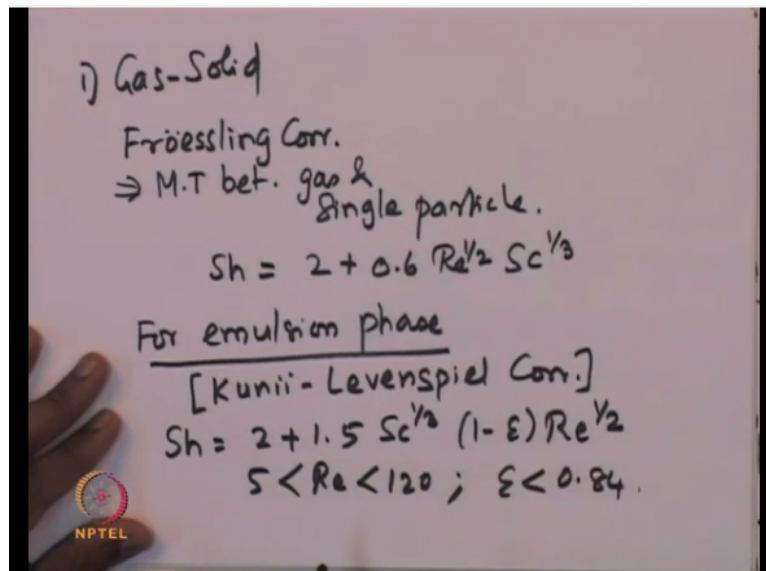 1) Gas-Solid
Fröessling Corr.
⇒ M.T bet. gas &
Single particle.
Sh = 2 + 0.6 Re^1/2 Sc^1/3
For emulsion phase
[Kunii-Levenspiel Corr.]
Sh = 2 + 1.5 Sc^1/3 (1-ε) Re^1/2
5 < Re < 120 ; ε < 0.84.
NPTEL